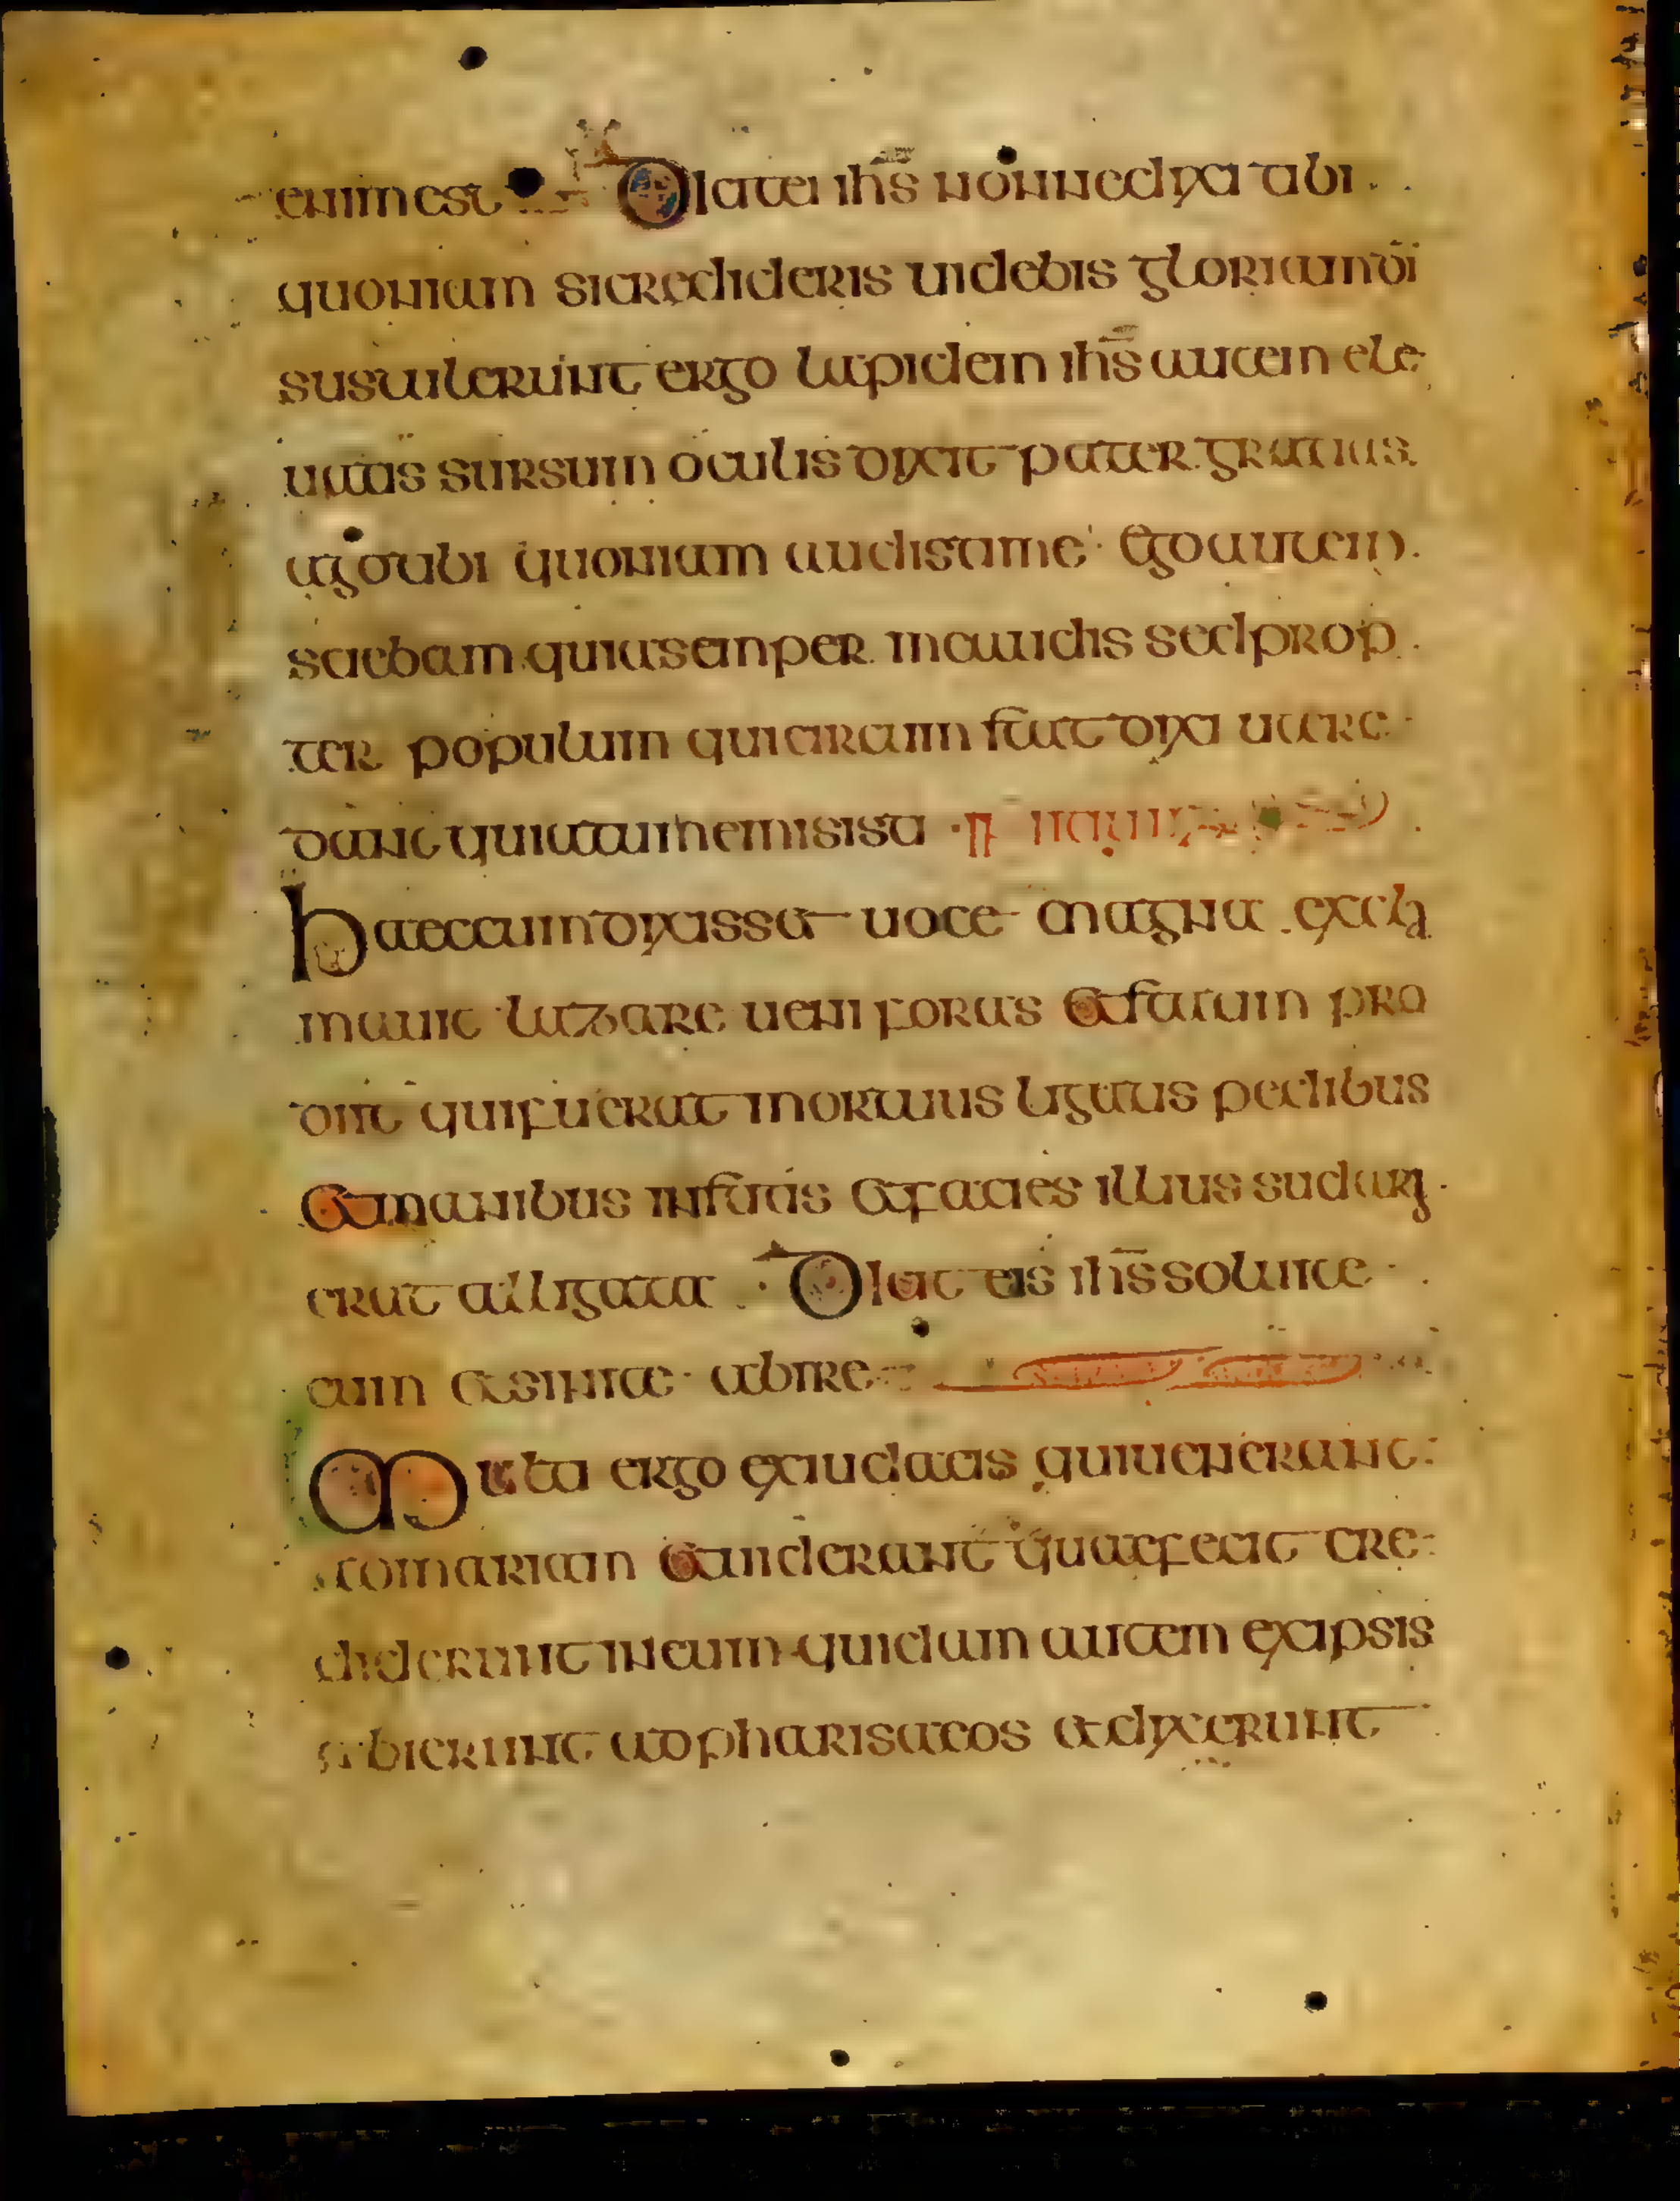 enim est Dicit ei ihs nonne dixi tibi
quoniam si credideris uidebis gloriam di
sustulerunt ergo lapidem ihs autem ele
uatis sursum oculis dixit pater gratias
ago tibi quoniam audisti me Ego autem
sciebam quia semper me audis sed prop
ter populum qui circum stat dixi ut cre
dant quia tu me misisti
haec cum dixisset uoce magna excla
mauit lazare ueni foras et statim pro
diit qui fuerat mortuus ligatus pedibus
et manibus institis et facies illius sudari
erat alligata Dicit eis ihs soluite
eum et sinite abire
Multi ergo ex iudaeis qui uenerant
ad mariam et uiderant quae fecit cre
diderunt in eum quidam autem ex ipsis
abierunt ad pharisaeos et dixerunt